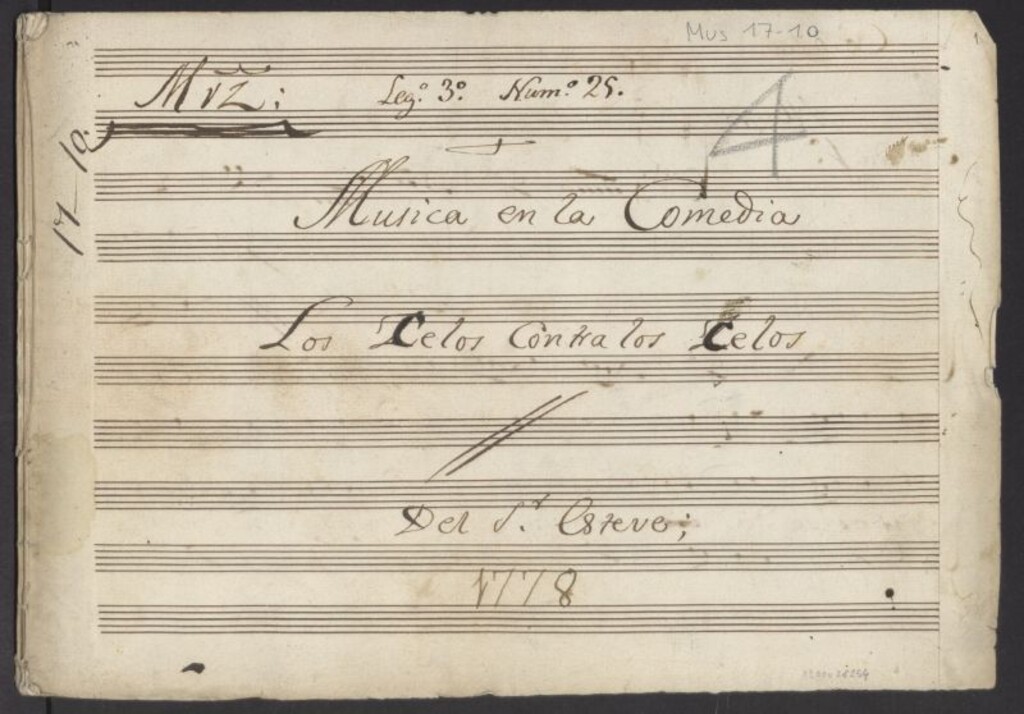 Mus 17-10
Legº 3º Numº 25.
4
17-10.
Musica en la Comedia
Los Celos Contra los Celos
Del S.r Esteve;
1778